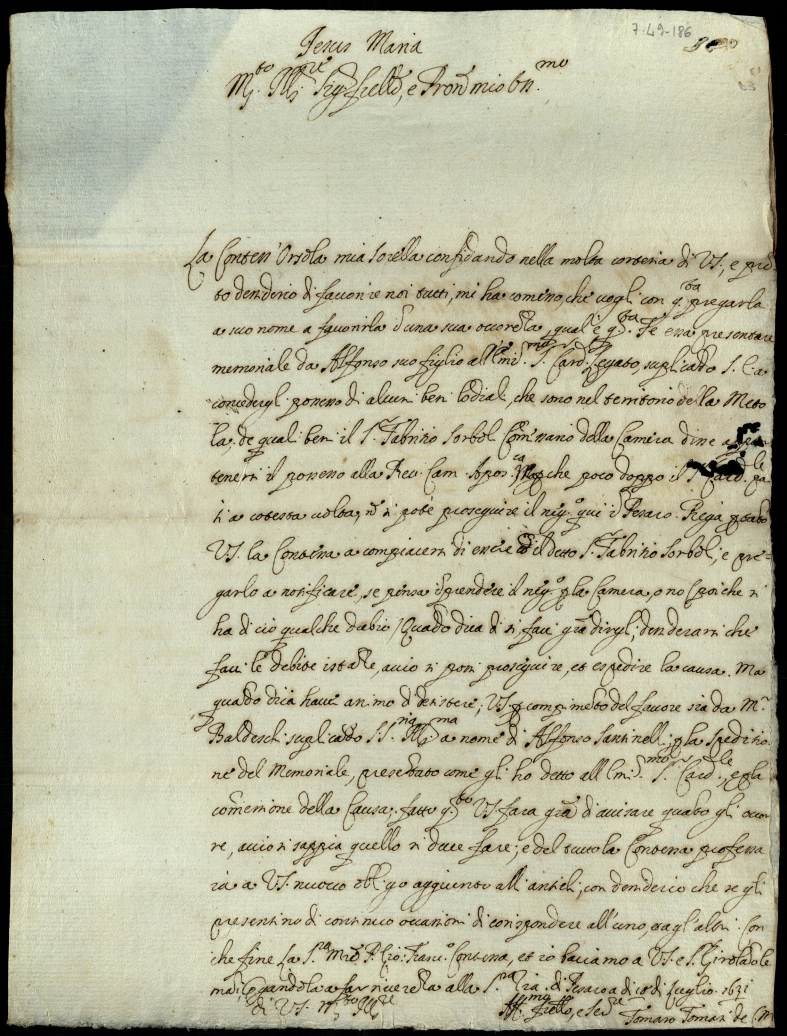 7-49-186
Jesus Maria
M.to Ill.re Sig.r fratello, e Pron mio oss.mo
La Contess' Orsola mia sorella confidando nella molta cortesia di V.S., e
to desiderio di favorire noi tutti, mi ha comesso, che vogli con q.ta pregarla
a suo nome a favorirla d'una sua occorēza, qual'è q.ta. Fe essa presentare
memoriale da Alfonso suo figlio all'Em.mo S. Card. Legato, suplicādo S. E. a
concedergl' possesso di alcuni beni lodiali, che sono nel territorio della Meto
la, de quali beni il S. Fabritio Sorbol. Com̄issario della Camera disse
tenersi il possesso alla Rev. Cam. Apos.ca che poco doppo il S. Card.le pa
tì a cotesta volta, nō si poté proseguire il neg.o qui ī Pesaro. Prega ptāto
V.S. la Contessa a compiacersi di essere cō il detto S. Fabritio Sorbol., e pre-
garlo a notificare, se pensa īprendere il neg.o p la Camera, o no (poiche si
ha di ciò qualche dubio) Quādo dica di sì, facī grā dirgl', desiderarsi che
facī le debite istāze, acciò si possi proseguire, et espedire la causa. Ma
quādo dica havē animo d desistere, V.S. p compimēto del favore sia da M.r
Baldeschi suplicādo S.S.ria Ill.ma a nome di Alfonso Santinelli p la speditio
ne del Memoriale, presētato come gli ho detto all'Em.mo S.r Card.le, e p la
com̄essione della Causa; fatto q.to V.S. farà grā d'avisare quāto gli occor
re, acciò si sappia quello si deve fare; e del tutto la Contessa professa
rà a V.S. nuovo obligo aggiunto alli antichi, con desiderio che se gli
presentino di continuo occasioni di corrispondere all'uno, e agl'altri. Con
che fine La S.ra Mrē P. Gio: Franc.o Contessa, et io baciamo a V.S. e S. Girolāo le
mani pgandola a far riverēza alla S.ra Zia. di Pesaro a dì 10 di Luglio 1631
di V.S. M.to Ill.re
Aff.mo fratello, e Ser.re
Tomaso Tomasi de